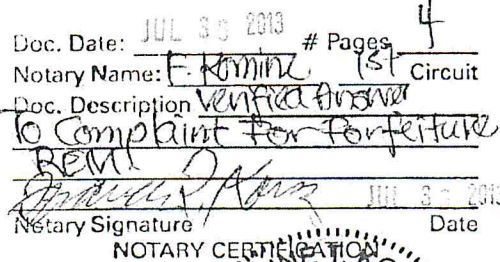 Doc. Date: JUL 2013 # Pages 4
Notary Name: F. 1st Circuit
Doc. Description Verified Answer
To Complaint For Forfeiture
REM!
JUL 2013
Notary Signature Date
NOTARY CERTIFICATION